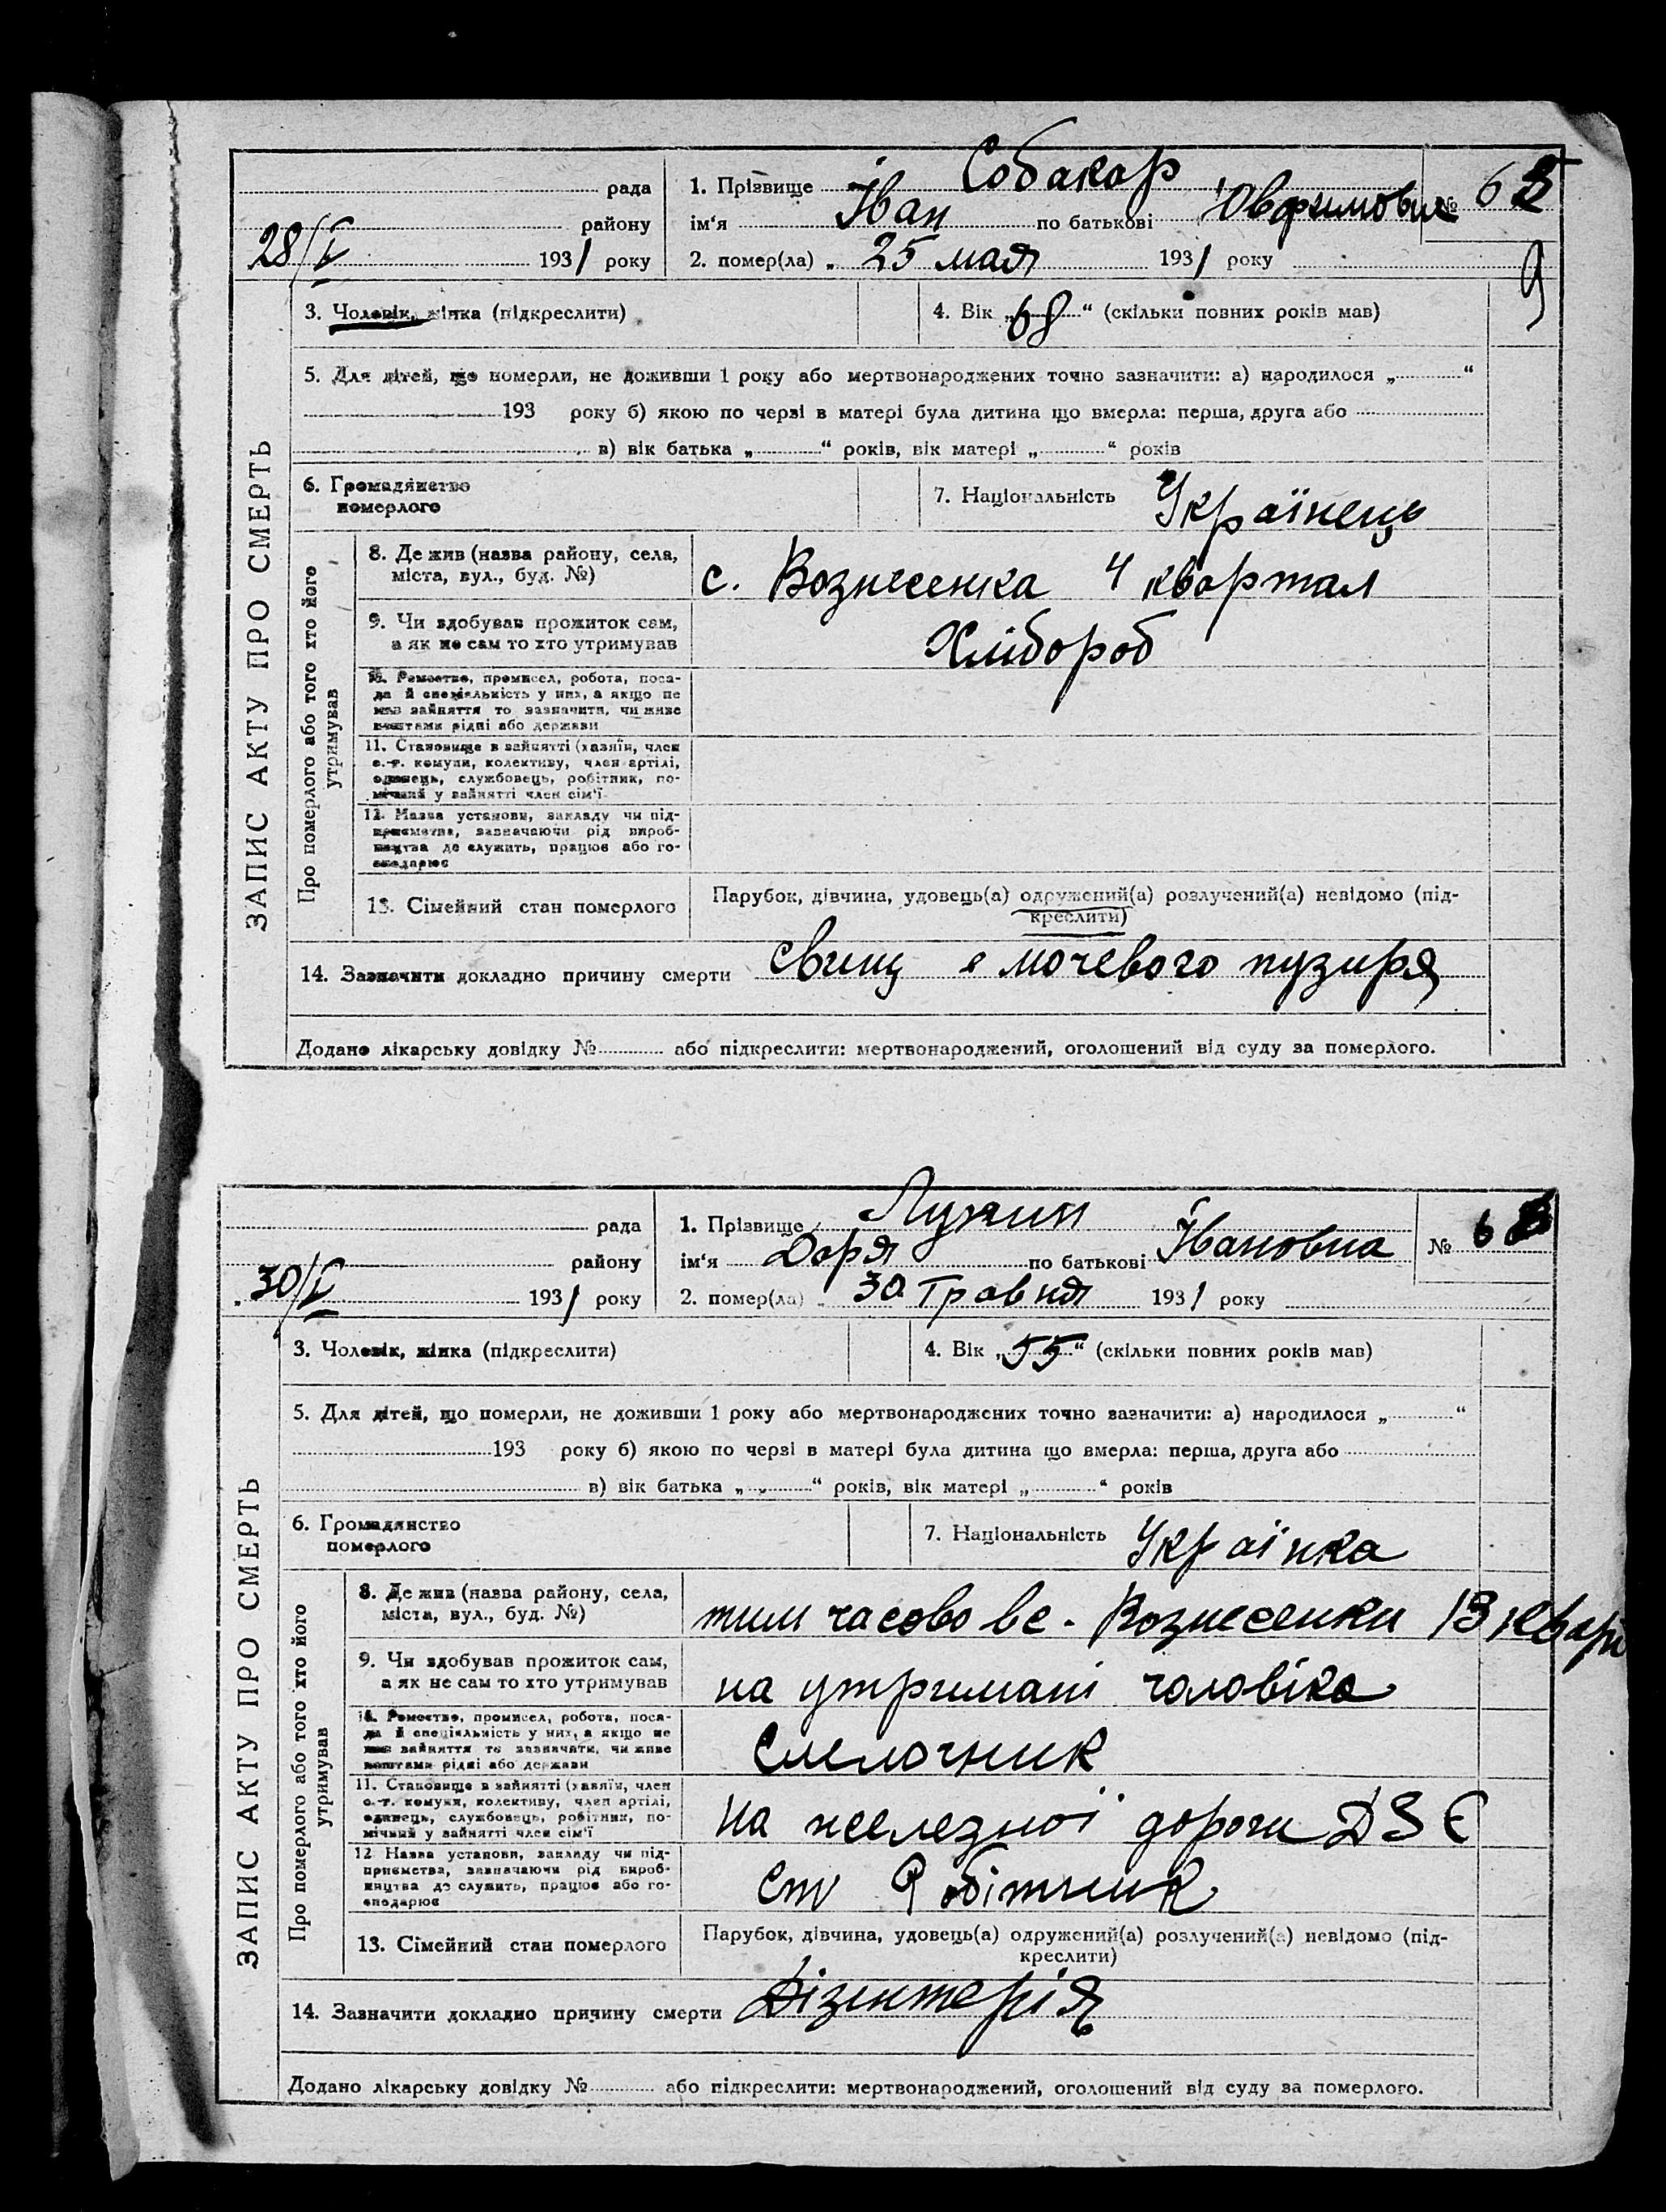 ЗАПИС АКТУ ПРО СМЕРТЬ
рада
району
28/V 1931 року
1. Прізвище Собакар
ім‘я Іван по батькові №
2. помер(ла) „ 25 мая 1931 року
9
3. Чоловік, жінка (підкреслити)
4. Вік „68“ (скільки повних років мав)
5. Для дітей, що померли, не доживши 1 року або мертвонароджених точно зазначити: а) народилося „ “
193 року б) якою по черзі в матері була дитина що вмерла: перша, друга або
в) вік батька „ “ років, вік матері „ “ років
6. Громадянство
померлого
7. Національність Українець
Про померлого або того хто його
утримував
8. Де жив (назва району, села,
міста, вул., буд. №)
с. Вознесенка 4 квартал
9. Чи здобував прожиток сам,
а як не сам то хто утримував
Хлібороб
10. Ремество, промисел, робота, поса-
да й спеціяльність у них, а якщо не
мав зайняття то зазначити, чи живе
коштами рідні або держави
11. Становище в зайнятті (хазяїн, член
с.-г. комуни, колективу, член артілі,
одинець, службовець, робітник, по-
мічний у зайнятті член сім‘ї
12. Назва установи, закладу чи під-
приємства, зазначаючи рід вироб-
ництва де служить, працює або го-
сподарює
13. Сімейний стан померлого
Парубок, дівчина, удовець(а) одружений(а) розлучений(а) невідомо (під-
креслити)
14. Зазначити докладно причину смерти мочевого пузиря
Додано лікарську довідку № або підкреслити: мертвонароджений, оголошений від суду за померлого.
ЗАПИС АКТУ ПРО СМЕРТЬ
рада
району
„ 30/V 1931 року
1. Прізвище
ім‘я Даря по батькові Івановна №
2. помер(ла) „ 30 Травня 1931 року
3. Чоловік, жінка (підкреслити)
4. Вік „55“ (скільки повних років мав)
5. Для дітей, що померли, не доживши 1 року або мертвонароджених точно зазначити: а) народилося „ “
193 року б) якою по черзі в матері була дитина що вмерла: перша, друга або
в) вік батька „ “ років, вік матері „ “ років
6. Громадянство
померлого
7. Національність Українка
Про померлого або того хто його
утримував
8. Де жив (назва району, села,
міста, вул., буд. №)
тимчасово в с. Вознесенки 13 кварт
9. Чи здобував прожиток сам,
а як не сам то хто утримував
на утримані чоловіка
10. Ремество, промисел, робота, поса-
да й спеціяльність у них, а якщо не
мав зайняття то зазначити, чи живе
коштами рідні або держави
11. Становище в зайнятті (хазяїн, член
с.-г. комуни, колективу, член артілі,
одинець, службовець, робітник, по-
мічний у зайнятті член сім‘ї
на железної дороги
12. Назва установи, закладу чи під-
приємства, зазначаючи рід вироб-
ництва де служить, працює або го-
сподарює
Робітник
13. Сімейний стан померлого
Парубок, дівчина, удовець(а) одружений(а) розлучений(а) невідомо (під-
креслити)
14. Зазначити докладно причину смерти Дізентерія
Додано лікарську довідку № або підкреслити: мертвонароджений, оголошений від суду за померлого.